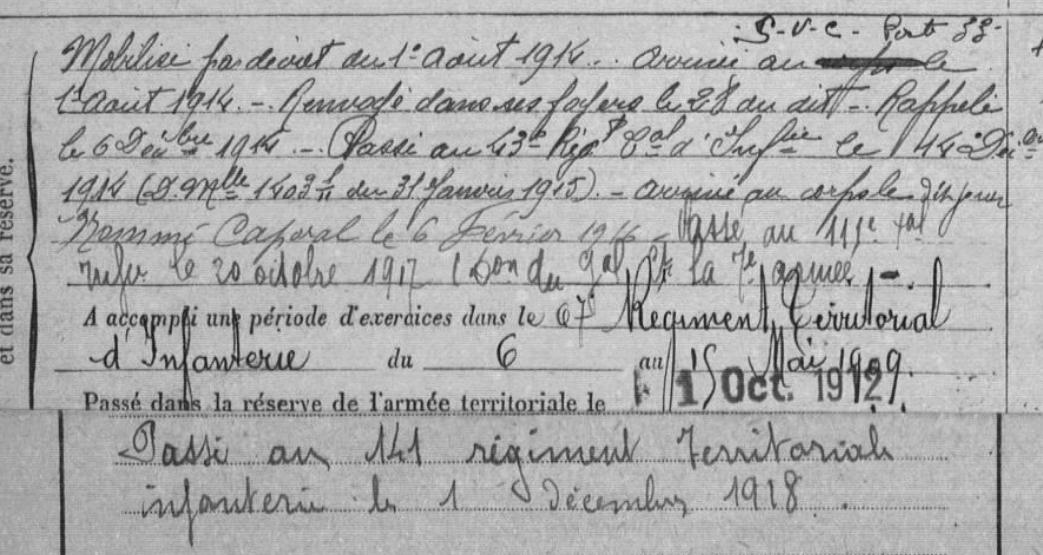 S.V.C. Poste 33.
Mobilisé par décret du 1er Août 1914. arrivé au le
1er Août 1914. - Renvoyé dans ses foyers le 28 du dit. - Rappelé
le 6 Décbre 1914. - Passé au 43e Régt tal d'Infie le 14 Déc
1914 (D. Mlle 1403 du 31 Janvier 1915). - arrivé au corps le dit jour
Nommé Caporal le 6 Février 1916 Passé au 111e tal
Infie le 20 octobre 1917 (Don du Gal Ct la 7e armée -.
et dans sa réserve.
A accompli une période d'exercices dans le 67e Régiment Territorial
d'Infanterie du 6 au 15 Mai 1909.
Passé dans la réserve de l'armée territoriale le 1 Oct. 1912
Passé au 141 régiment Territorial
infanterie le 1 décembre 1918.